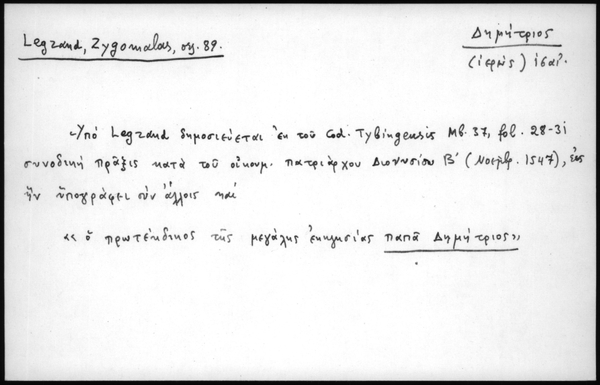 Legrand, Zygomalas, σελ. 89.
Δημήτριος
(ἱερεὺς) ιϛαι.
Ὑπό Legrand δημοσιεύεται ἐκ τοῦ Cod. Tybingensis Mb. 37, fol. 28-31
συνοδική πρᾶξις κατά τοῦ οἰκουμ. πατριάρχου Διονυσίου Β´ (Νοέμβρ. 1547), εἰς
ἥν ὑπογράφει σύν ἄλλοις καί
«ὁ πρωτέκδικος τῆς μεγάλης ἐκκλησίας παπᾶ Δημήτριος»